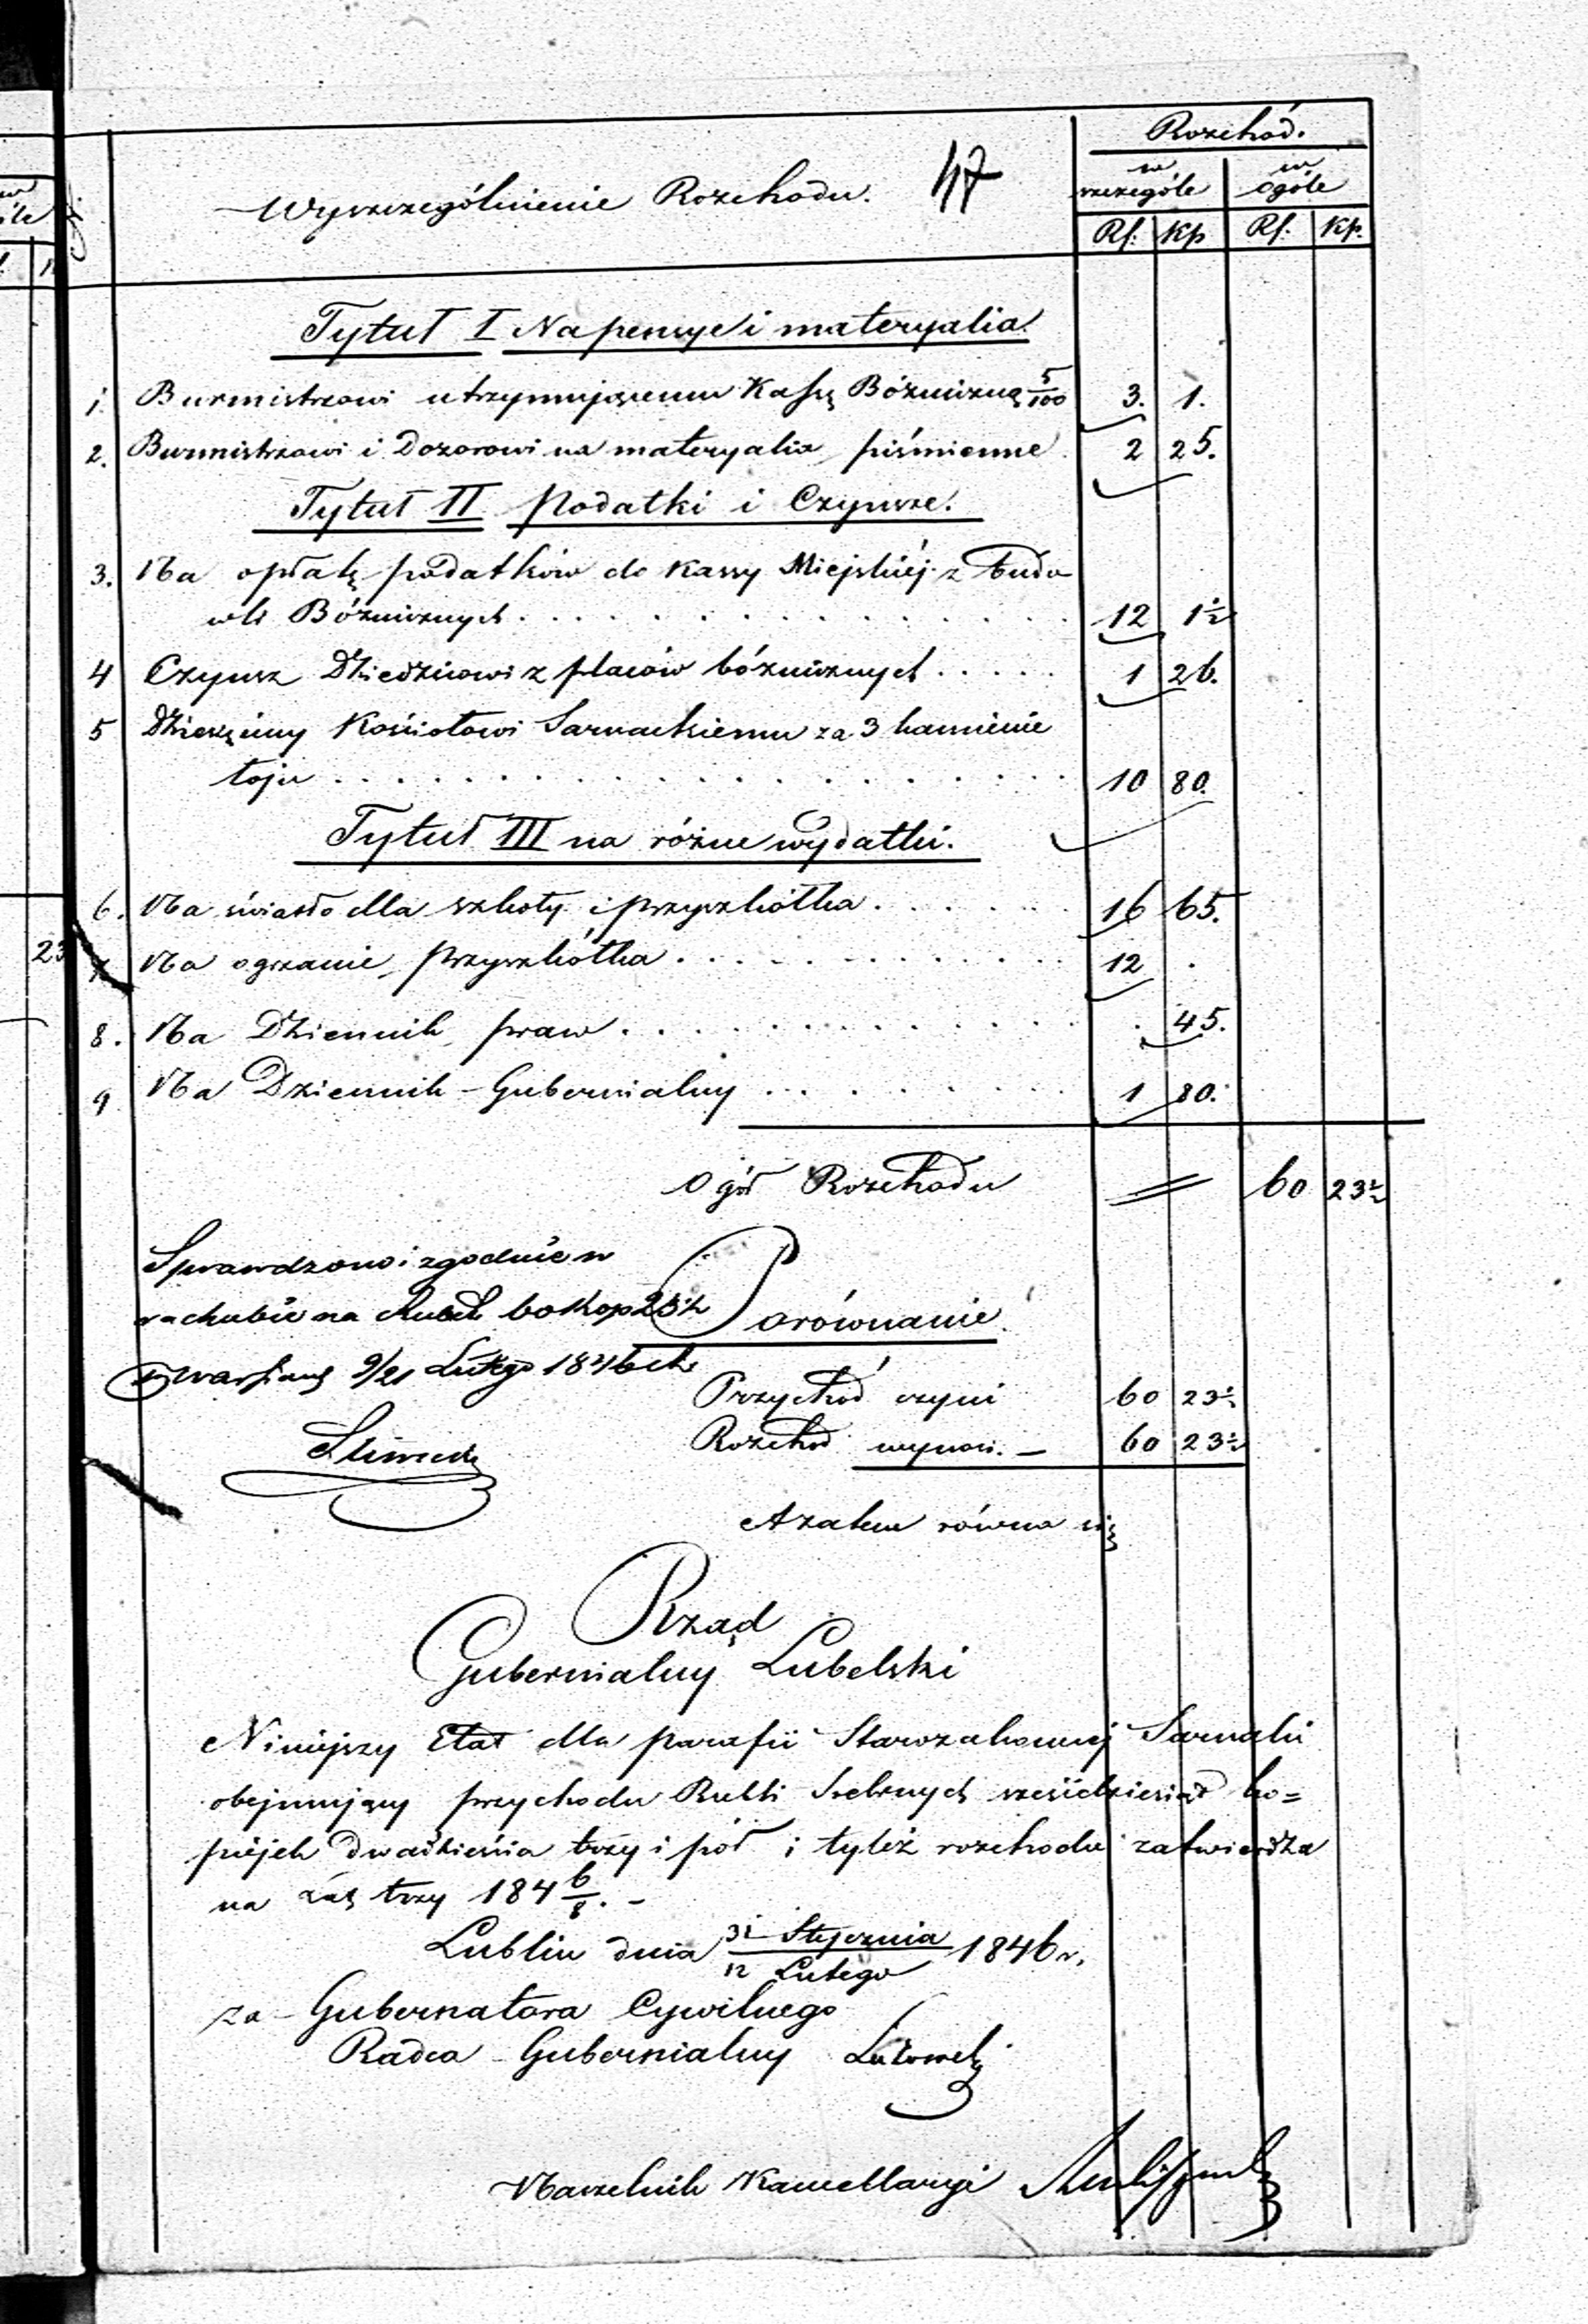 Rozchód.
Wyszczególnienie Rozchodu. 47
w szczególe w ogóle
Rs: Kp Rs: Kp.
Tytuł I Na pensye i materyalia.
1. Burmistrzowi utrzymującemu Kassę Bóżniczną 5/100 3. 1.
2. Burmistrzowi i Dozorowi na materyalia piśmienne 2 25.
Tytuł II Podatki i Czynsze.
3. Na opłatę podatków do Kassy Miejskiéj z budo
wli Bóżnicznych . . . . . . . . . . . 12 1½
4 Czynsz Dziedzicowi z placów bóżnicznych . . . . . 1 26.
5 Dziesięciny Kościołowi Sarnackiemu za 3 kamienie
łoju . . . . . . . . . . . . . . . 10 80.
Tytuł III na różne wydatki.
6. Na światło dla szkoły i przyszkółka . . . . . . 16 65.
7 Na ogrzanie przyszkółka . . . . . . . . . . 12 .
8. Na Dziennik praw . . . . . . . . . . . . . 45.
9 Na Dziennik Gubernialny . . . . . . . . 1 80.
Ogół Rozchodu = 60 23½
Sprawdzono i zgodnie w
rachubie na Rubli 60 Kop 23½
Warszawa 9/21 Lutego 1846
Porównanie.
Przychód czyni 60 23½
Rozchód wynosi. — 60 23½
A zatem równa się
Rząd
Gubernialny Lubelski
Niniejszy Etat dla parafii Starozakonnej Sarnaki
obejmujący przychodu Rubli Srebrnych sześćdziesiąt ko=
piejek dwadzieścia trzy i pół i tyleż rozchodu zatwierdza
na lat trzy 184 6/8. —
Lublin dnia 31 Stycznia / 12 Lutego 1846 r.
za Gubernatora Cywilnego
Radca Gubernialny
Naczelnik Kancellaryi